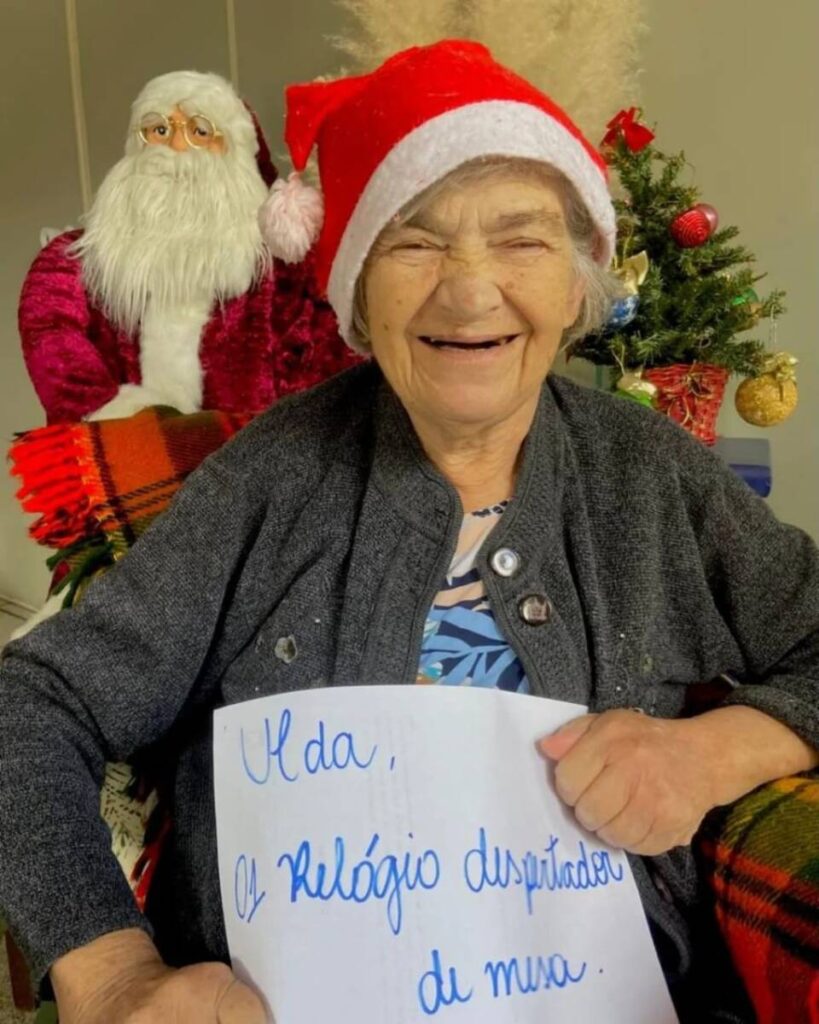 Ilda,
01 Relógio despertador
de mesa.